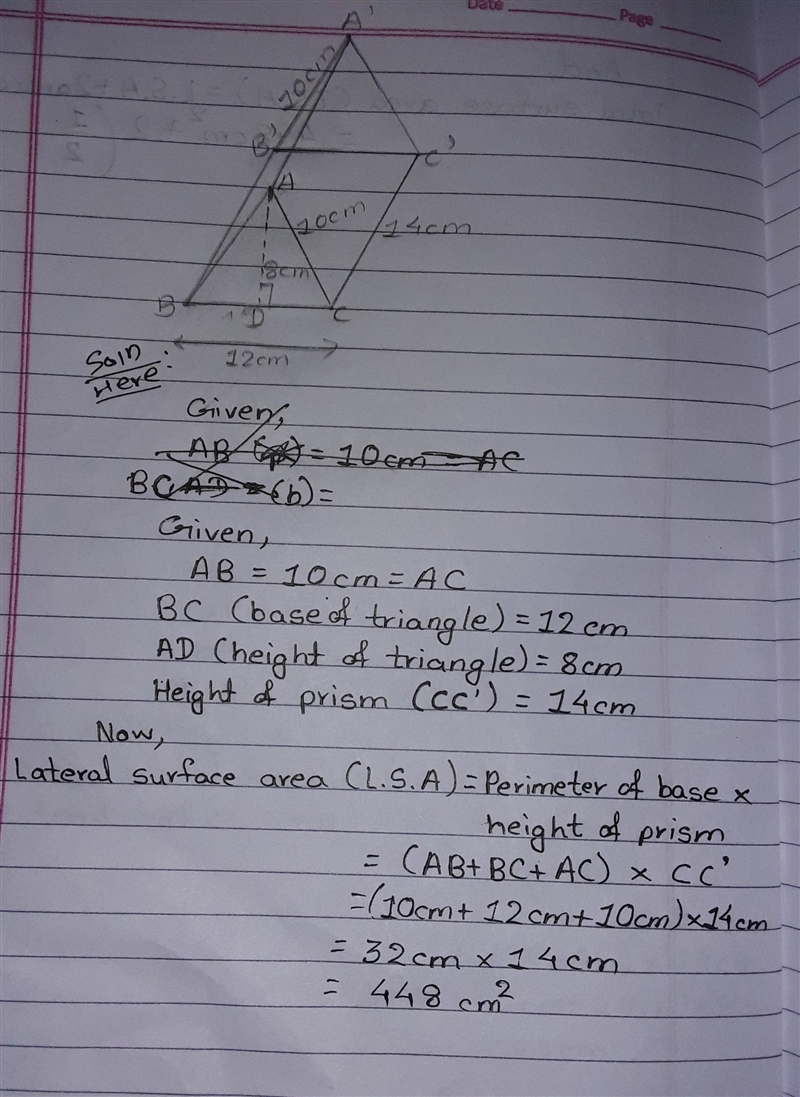 Date Page
A'
10cm
B'
C'
A
10cm
14cm
8cm
B
D
C
12cm
Soln
Here:
Given,
AB = 10cm = AC
BC AD = (b) =
Given,
AB = 10cm = AC
BC (base of triangle) = 12 cm
AD (height of triangle) = 8cm
Height of prism (CC') = 14cm
Now,
Lateral surface area (L.S.A) = Perimeter of base ×
height of prism
= (AB+BC+AC) × CC'
=(10cm+12cm+10cm)×14cm
= 32cm × 14cm
= 448 cm²